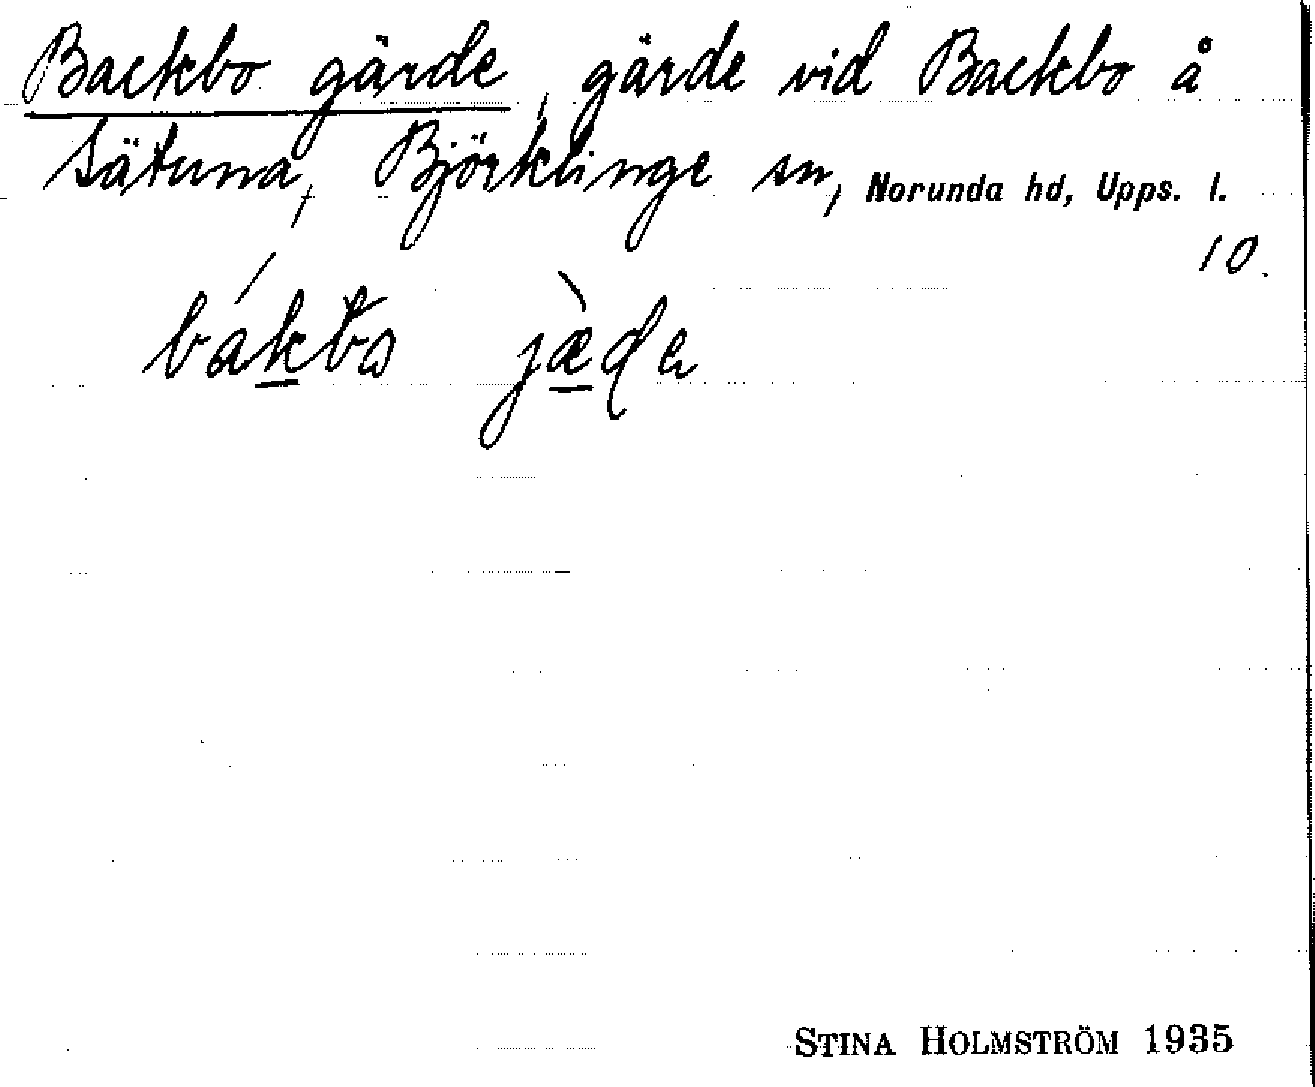 Backbo gärde, gärde vid Backbo å
Sätuna, Björklinge sn, Norunda hd, Upps. l.
10.
bákbo jæ̀de
STINA HOLMSTRÖM 1935